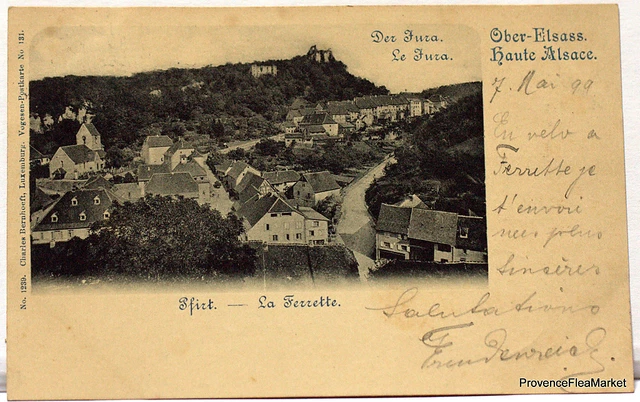 Der Jura.
Le Jura.
Ober-Elsass.
Haute Alsace.
7. Mai 99
En velo a
Ferrette je
t'envoie
mes plus
sincères
Salutations
Pfirt. — La Ferrette.
No. 1239. Charles Bernhoeft, Luxemburg. Vogesen-Postkarte No 131.
ProvenceFleaMarket